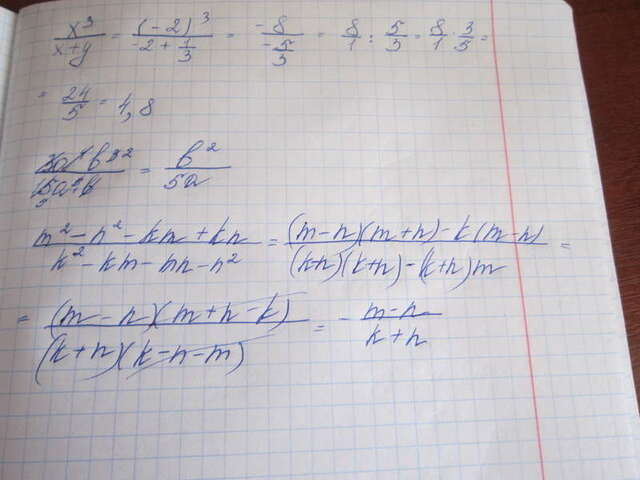 x³/(x+y) = (-2)³/(-2 + 1/3) = -8/(-5/3) = 8/1 : 5/3 = 8/1 · 3/5 =
= 24/5 = 4,8
= b²/5a
(m² - n² - km + kn)/(k² - km - mn - n²) = ((m-n)(m+n) - k(m-n))/((k-n)(k+n) - (k+n)m) =
= (m - n)(m + n - k)/((k+n)(k-n-m)) = - (m-n)/(k+n)